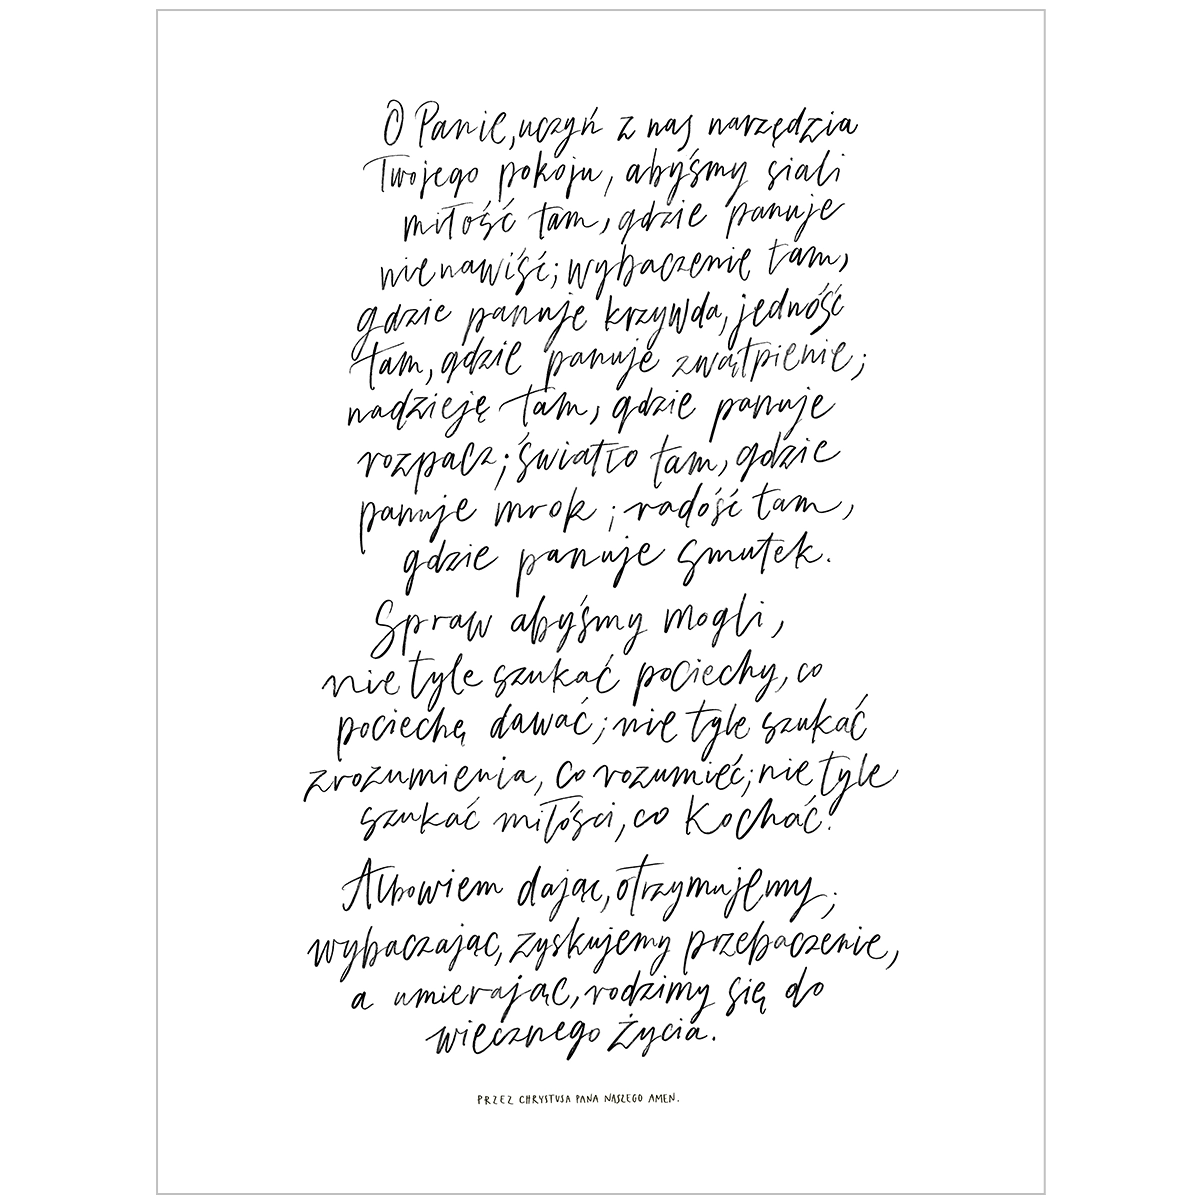 O Panie, uczyń z nas narzędzia
Twojego pokoju, abyśmy siali
miłość tam, gdzie panuje
nienawiść; wybaczenie tam,
gdzie panuje krzywda, jedność
tam, gdzie panuje zwątpienie;
nadzieję tam, gdzie panuje
rozpacz; światło tam, gdzie
panuje mrok; radość tam,
gdzie panuje smutek.
Spraw abyśmy mogli,
nie tyle szukać pociechy, co
pociechę dawać; nie tyle szukać
zrozumienia, co rozumieć; nie tyle
szukać miłości, co kochać.
Albowiem dając, otrzymujemy;
wybaczając, zyskujemy przebaczenie,
a umierając, rodzimy się do
wiecznego życia.
PRZEZ CHRYSTUSA PANA NASZEGO AMEN.